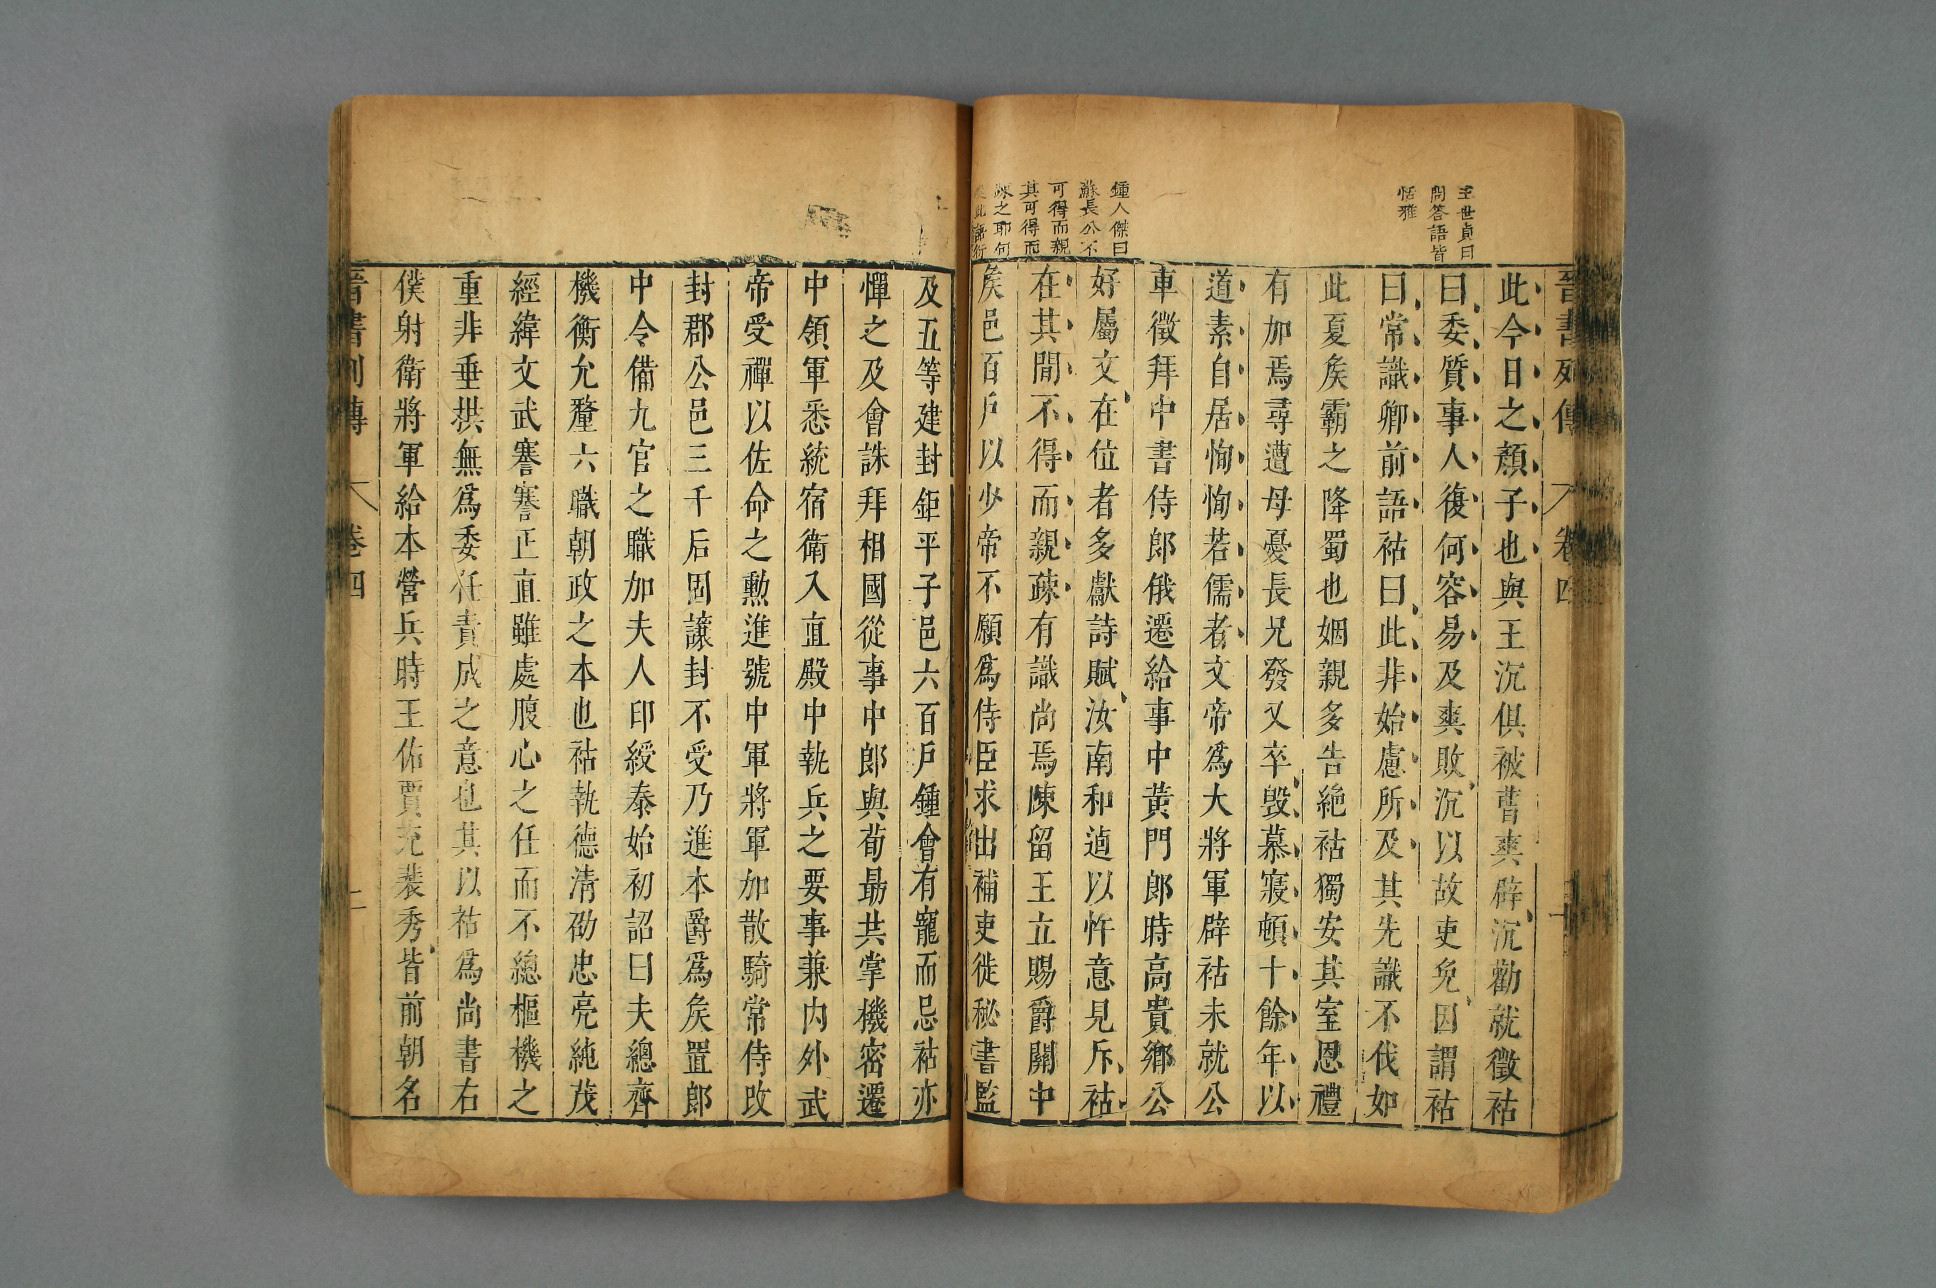 晉書列傳 卷四
王世貞曰
問答語皆
恬雅
鍾人傑曰
蘇長公不
可得而親
其可得而
踈之耶何
此今日之顏子也與王沉俱被曹爽辟沉勸就徵祜
曰委質事人復何容易及爽敗沉以故吏免因謂祜
曰常識卿前語祜曰此非始慮所及其先識不伐如
此夏矦霸之降蜀也姻親多告絶祜獨安其室恩禮
有加焉尋遭母憂長兄發又卒毀慕寢頓十餘年以
道素自居恂恂若儒者文帝爲大將軍辟祜未就公
車徵拜中書侍郎俄遷給事中黃門郎時高貴鄉公
好屬文在位者多獻詩賦汝南和逌以忤意見斥祜
在其間不得而親疎有識尚焉陳留王立賜爵關中
矦邑百戶以少帝不願爲侍臣求出補吏徙秘書監
及五等建封鉅平子邑六百戶鍾會有寵而忌祜亦
憚之及會誅拜相國從事中郎與荀勗共掌機密遷
中領軍悉統宿衛入直殿中執兵之要事兼內外武
帝受禪以佐命之勲進號中軍將軍加散騎常侍改
封郡公邑三千戶固讓封不受乃進本爵爲矦置郎
中令備九官之職加夫人印綬泰始初詔曰夫總齊
機衡允釐六職朝政之本也祜執德清劭忠亮純茂
經緯文武謇謇正直雖處腹心之任而不總樞機之
重非垂拱無爲委任責成之意也其以祜爲尚書右
僕射衛將軍給本營兵時王佑賈充裴秀皆前朝名
晉書列傳 卷四